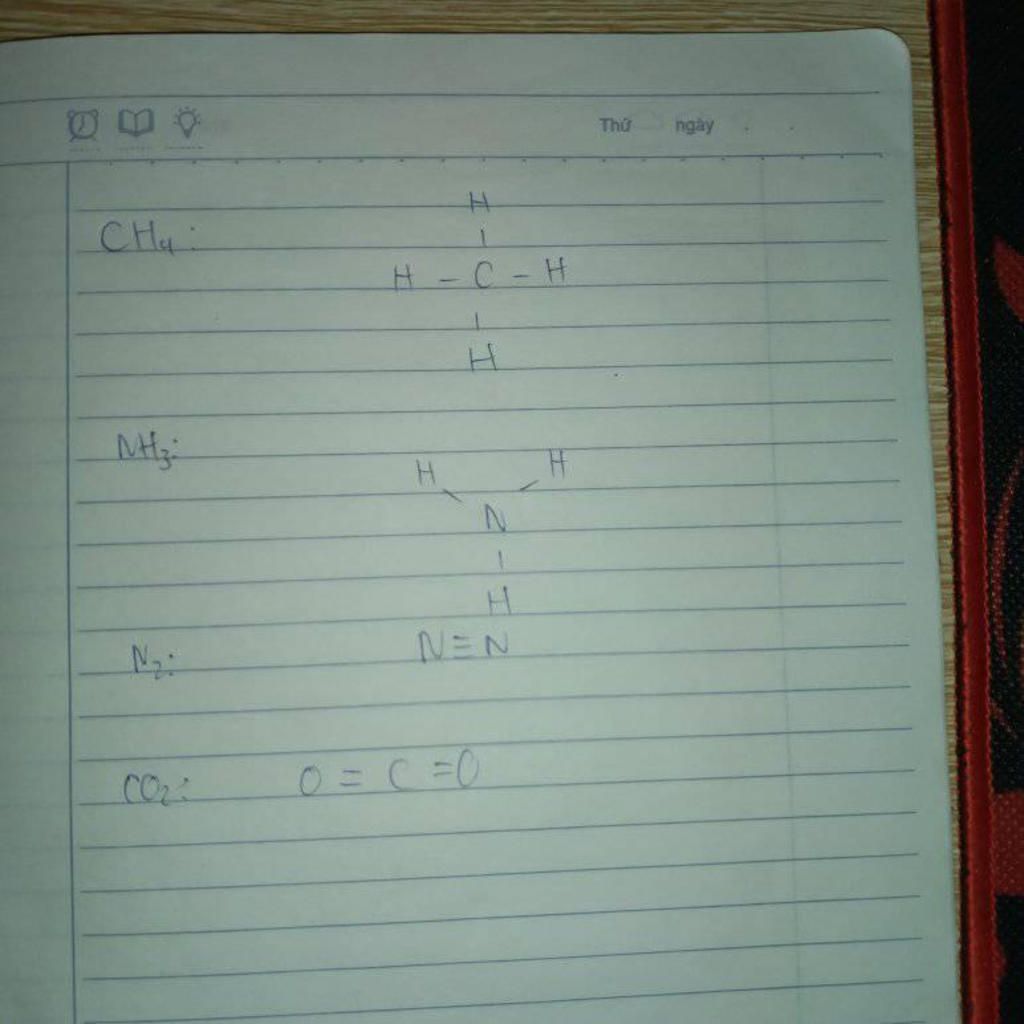 Thứ ngày
H
CH4:
|
H - C - H
|
H
NH3:
H H
\ /
N
|
H
N2: N≡N
CO2: O = C =O